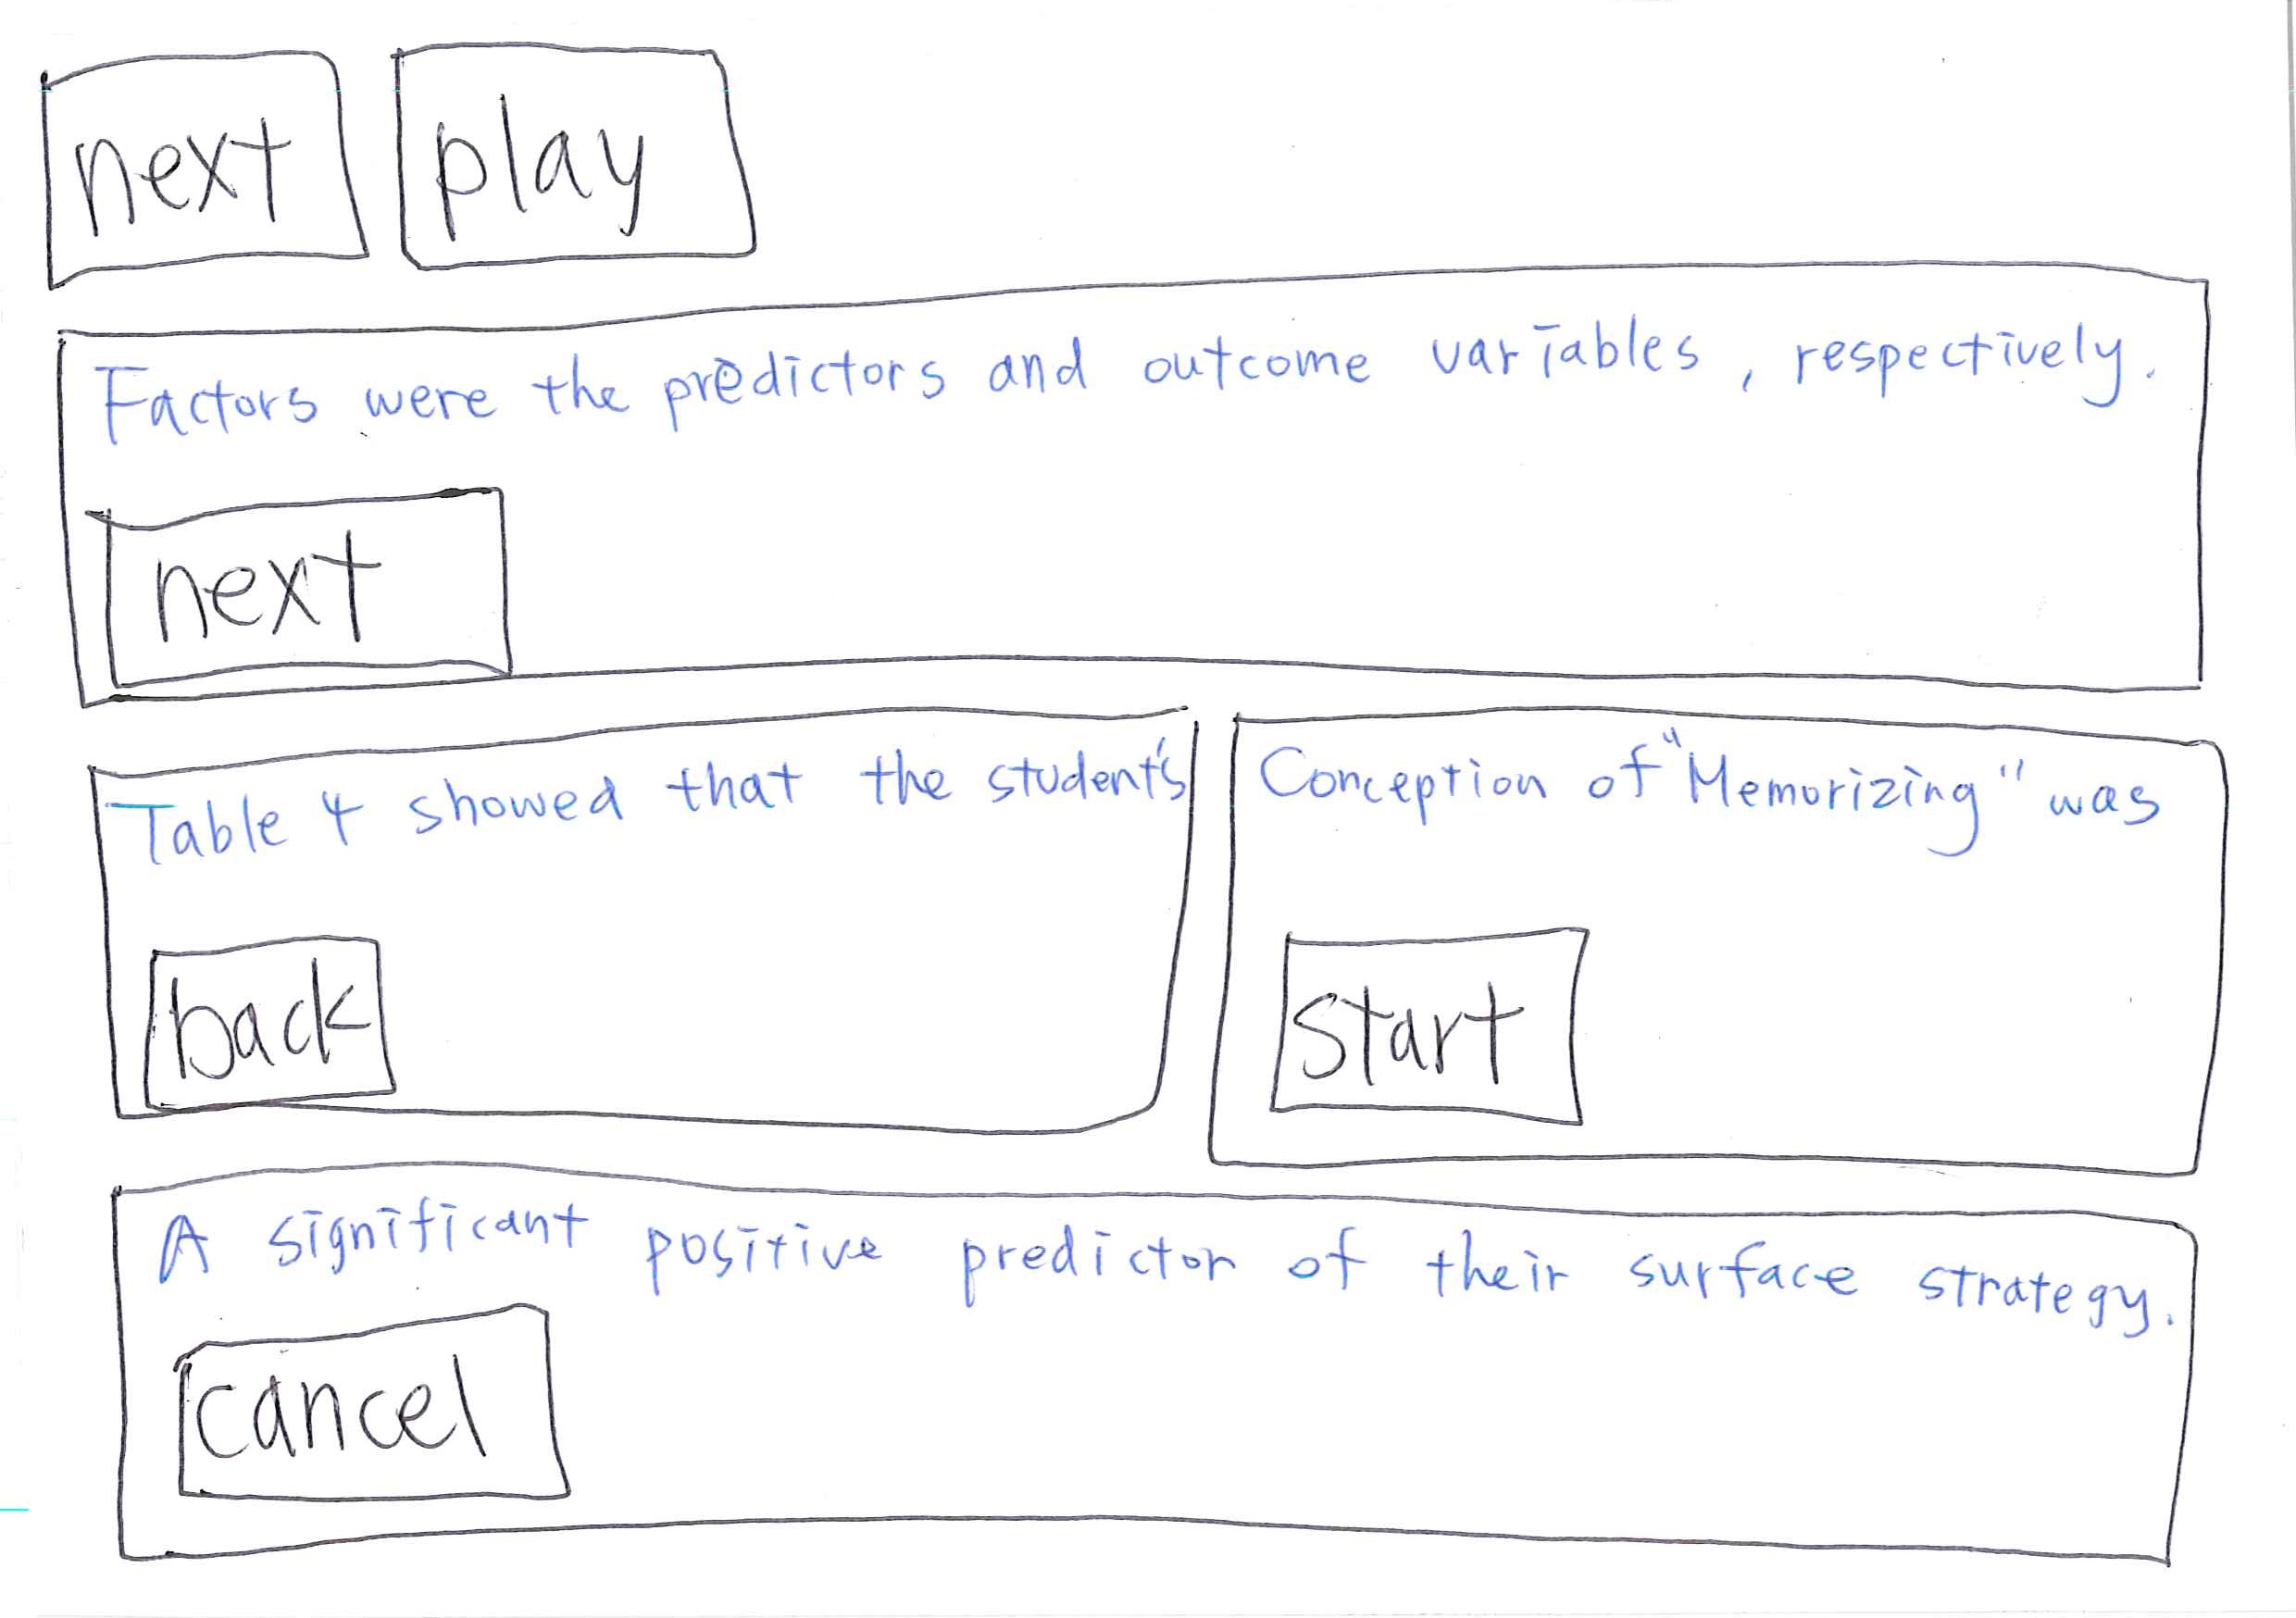 next play
Factors were the predictors and outcome variables, respectively.
next
Table 4 showed that the student's
Conception of "Memorizing" was
back
start
A significant positive predictor of their surface strategy.
cancel